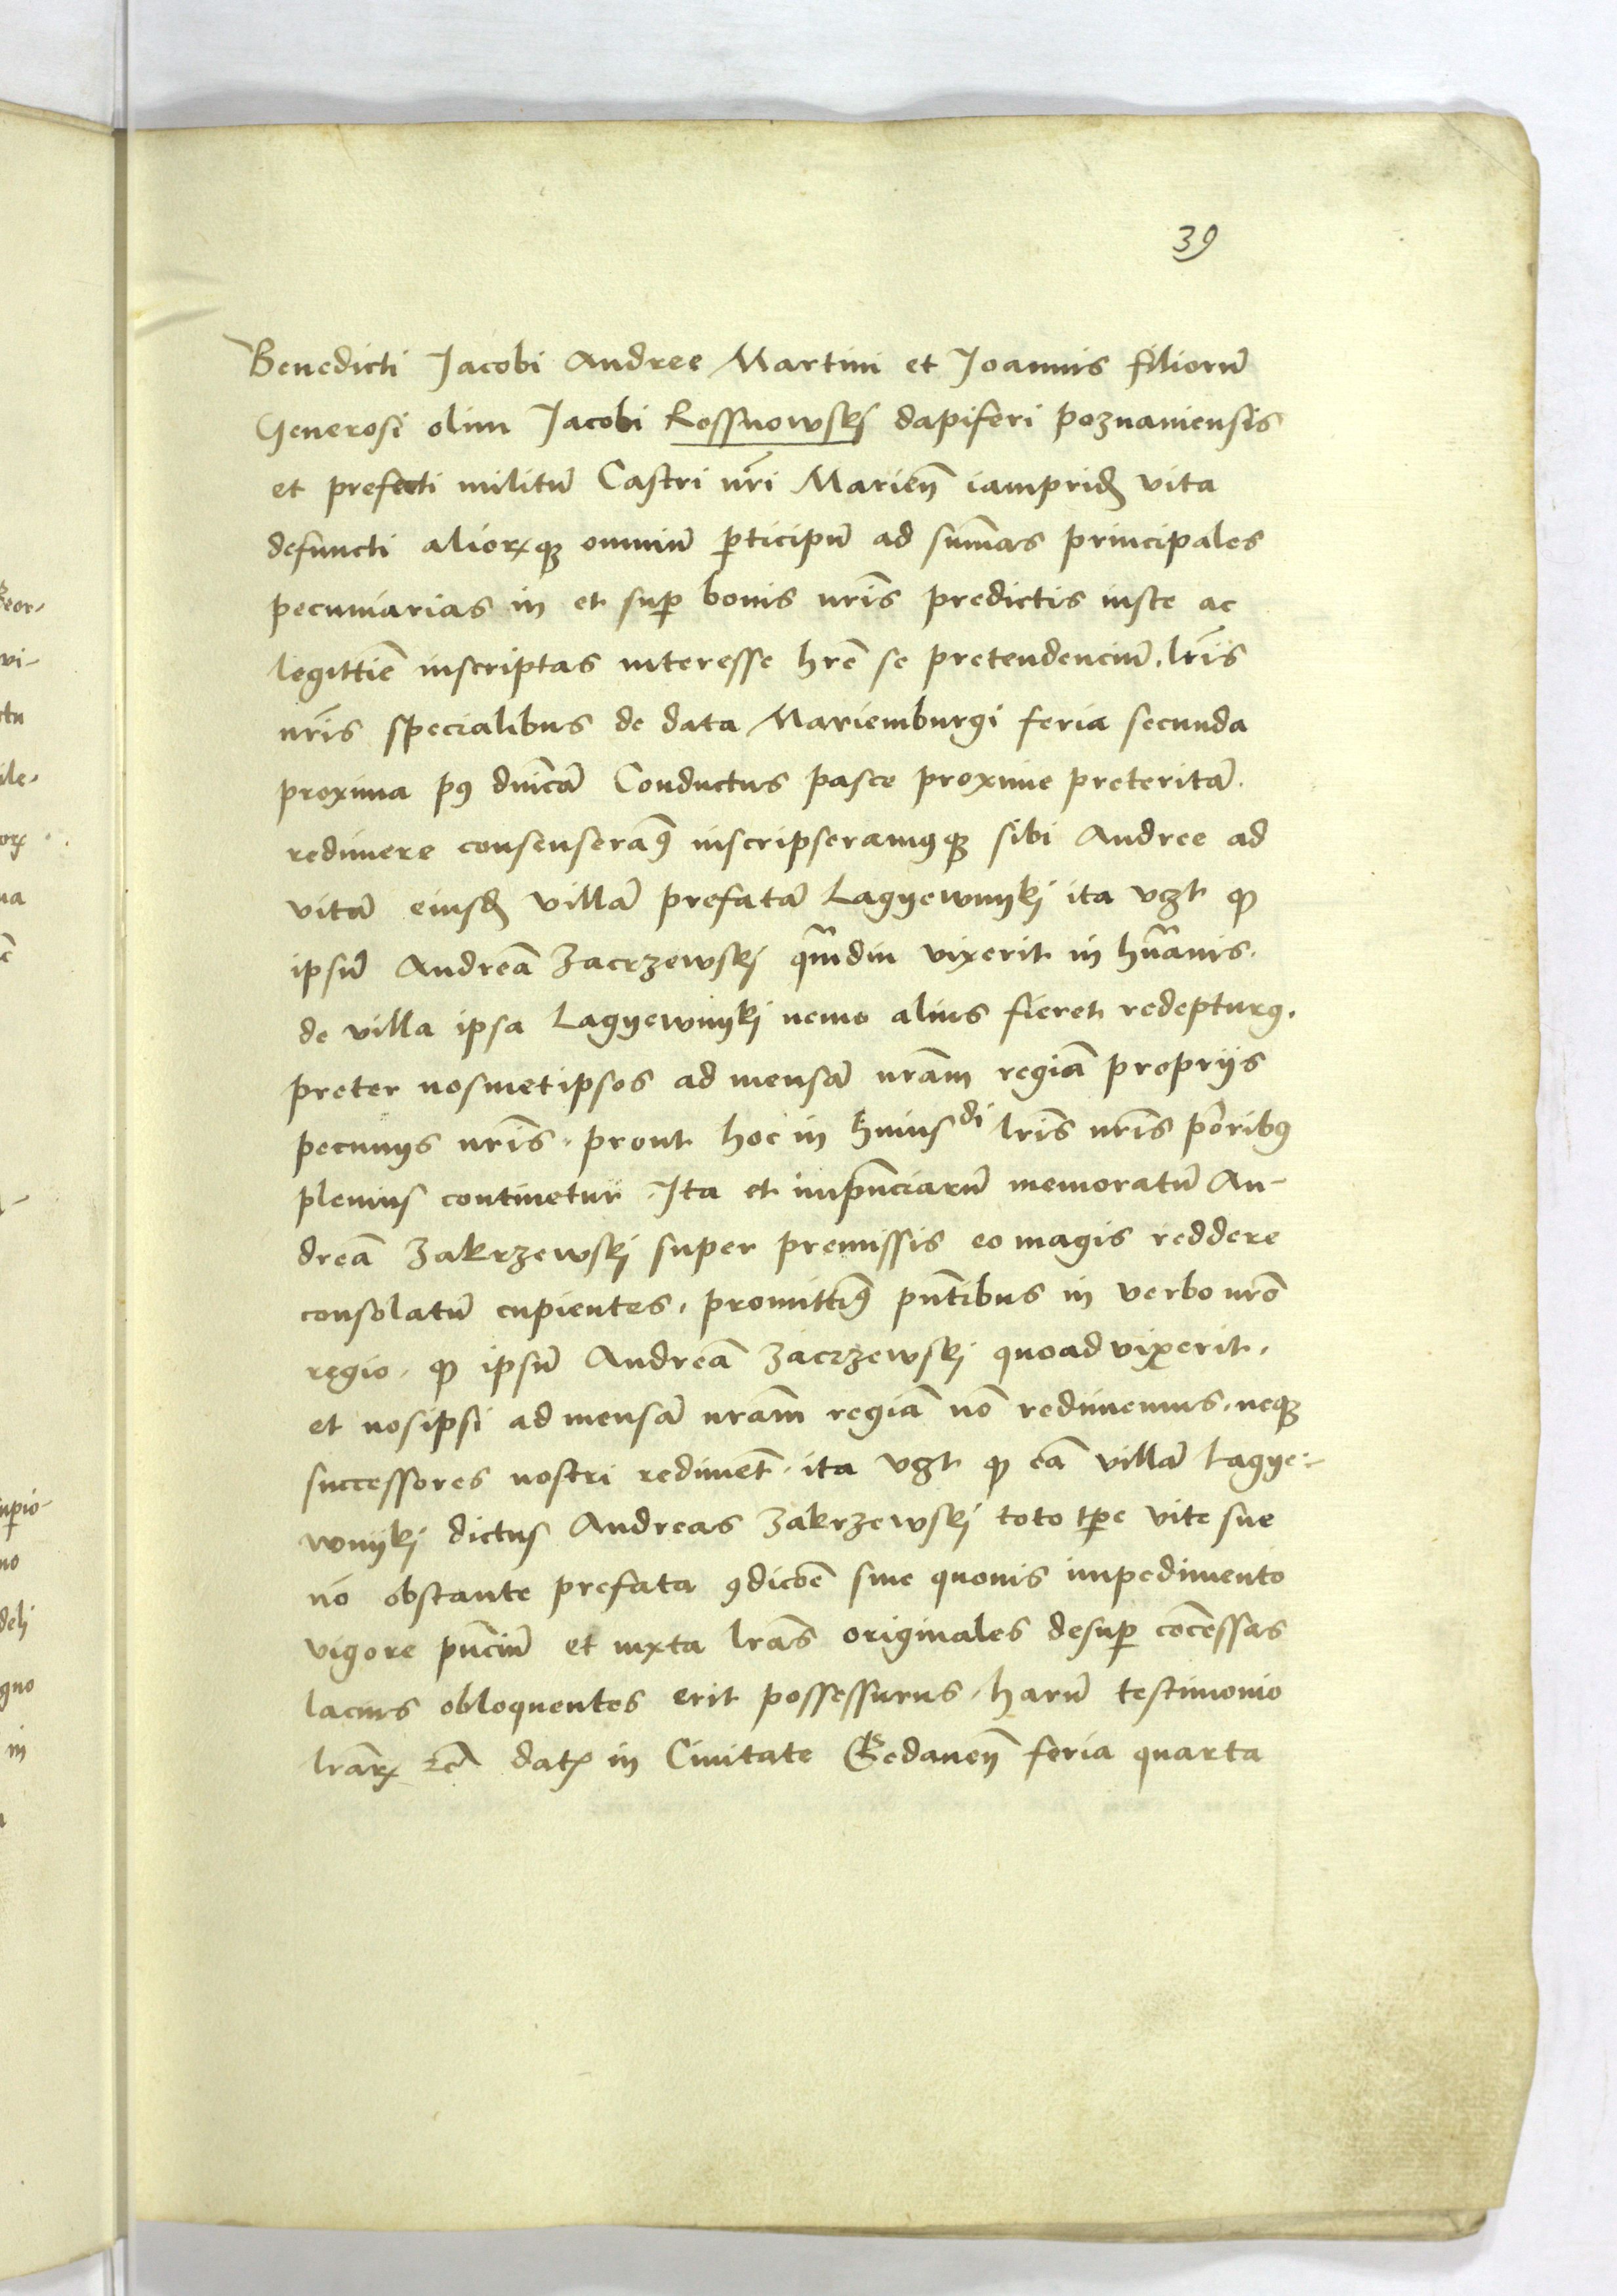 39
Benedicti Jacobi Andree Martini et Joannis filiorū
Generosi olim Jacobi Rossnowskj dapiferi poznaniensis
et prefecti militū Castri nr̄i Marien̄ iampridꝫ vita
defuncti aliorꝝqꝫ omniū ꝑticipū ad sum̄as principales
pecuniarias in et suꝑ bonis nr̄is predictis iuste ac
legittīe inscriptas interesse hr̄e se pretendenciū. lr̄is
nr̄is specialibus de data Mariemburgi feria secunda
proxima pꝰ dnīcā Conductus pasce proxime preteritā.
redimere consenseramꝰ inscripseramusqꝫ sibi Andree ad
vitā eiusdꝫ villā prefatā Lagyewnykj ita vꝫlt ꝙ
ipsū Andreā Zacrzewskj qᵃmdiu vixerit in hᵃuanis.
de villa ipsa Lagyewnykj nemo alius fieret redepturꝰ.
preter nosmetipsos ad mensā nrām regiā proprijs
pecunijs nr̄is. prout hoc in huiusᵈⁱ lr̄is nr̄is pōribꝰ
plenius continetur. Ita et imp̄nciarū memoratū An-
dreā Zakrzewskj super premissis eo magis reddere
consolatū cupientes. promittimꝰ pn̄tibus in verbo nr̄o
regio. ꝙ ipsū Andreā Zacrzewskj quoad vixerit.
et nosipsi ad mensā nrām regiā nō redimemus. neqꝫ
successores nostri rediment̄. ita vꝫlt ꝙ eā villā Lagye-
wnykj dictus Andreas Zakrzewskj toto tꝑe vite sue
nō obstante prefata ꝯdicōe sine quouis impedimento
vigore pn̄ciū et iuxta lrās originales desuꝑ cōcessas
lacius obloquentes erit possessurus. harū testimonio
lrārꝝ ꝛc̄ datꝝ in Ciuitate Gedanen̄ feria quarta